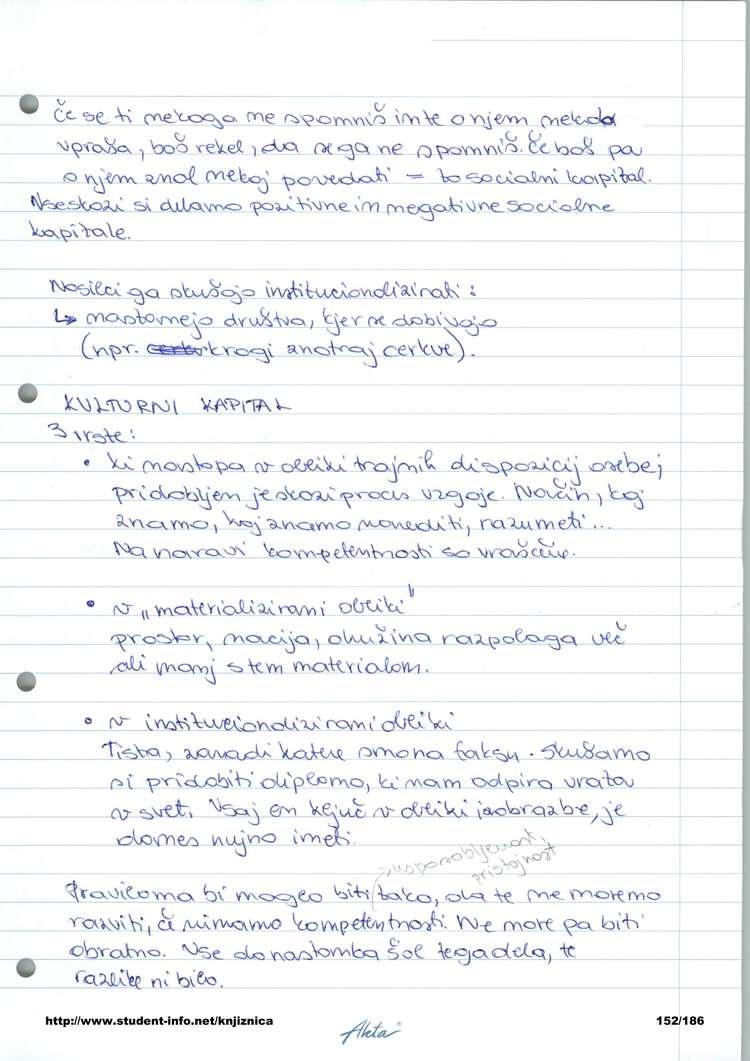 Če se ti nekoga ne spomniš in te o njem nekdo
vpraša, boš rekel, da se ga ne spomniš. Če boš pa
o njem znal nekaj povedati = to socialni kapital.
Vseskozi si delamo pozitivne in negativne socialne
kapitale.
Nosilci ga skušajo institucionalizirati:
↳ nastanejo društva, kjer se dobivajo
(npr. krogi znotraj cerkve).
KULTURNI KAPITAL
3 vrste:
• ki nastopa v obliki trajnih dispozicij osebe;
pridobljen je skozi proces vzgoje. Način, kaj
znamo, kaj znamo narediti, razumeti...
Na naravi kompetentnosti so
• v "materializirani obliki"
prostor, nacija, družina razpolaga več
ali manj s tem materialom.
• v institucionalizirani obliki
Tista, zaradi katere smo na faksu. Skušamo
si pridobiti diplomo, ki nam odpira vrata
v svet. Vsaj en ključ v obliki izobrazbe, je
danes nujno imeti.
→ usposobljenost,
pristojnost
Praviloma bi moglo biti tako, da te ne moremo
razviti, če nimamo kompetentnosti. Ne more pa biti
obratno. Vse do nastanka šol tega dela, te
razlike ni bilo.
http://www.student-info.net/knjiznica
Akta
152/186